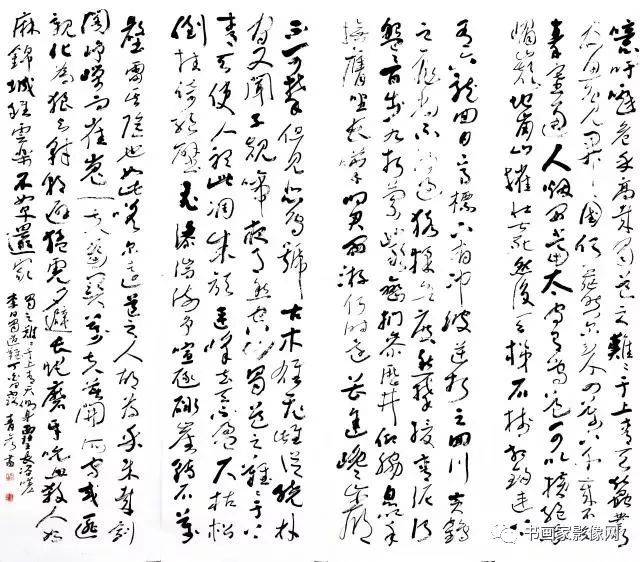 噫吁嚱危乎高哉蜀道之難難于上青天蠶叢
及魚鳧開國何茫然爾來四萬八千歲不
秦塞通人煙西當太白有鳥道可以橫絕
峨嵋巔地崩山摧壯士死然後天梯石棧相鉤連上
有六龍回日高標下有沖波逆折之回川黃鶴
之飛尚不得過猿猱欲度愁攀援青泥何
盤盤百步九折縈巖巒捫參歷井仰脅息以手
撫膺坐長嘆問君西游何時還畏途巉巖
不可攀但見悲鳥號古木雄飛雌從繞林
間又聞子規啼夜月愁空山蜀道之難難于上
青天使人聽此凋朱顏連峰去天不盈尺枯松
倒挂倚絕壁飛湍瀑流爭喧豗砯崖轉石萬
壑雷其險也如此嗟爾遠道之人胡為乎來哉劍
閣崢嶸而崔嵬一夫當關萬夫莫開所守或匪
親化為狼與豺朝避猛虎夕避長蛇磨牙吮血殺人如
麻錦城雖云樂不如早還家
蜀道之難難于上青天側身西望長咨嗟
李白蜀道難丁酉
书画家影像网